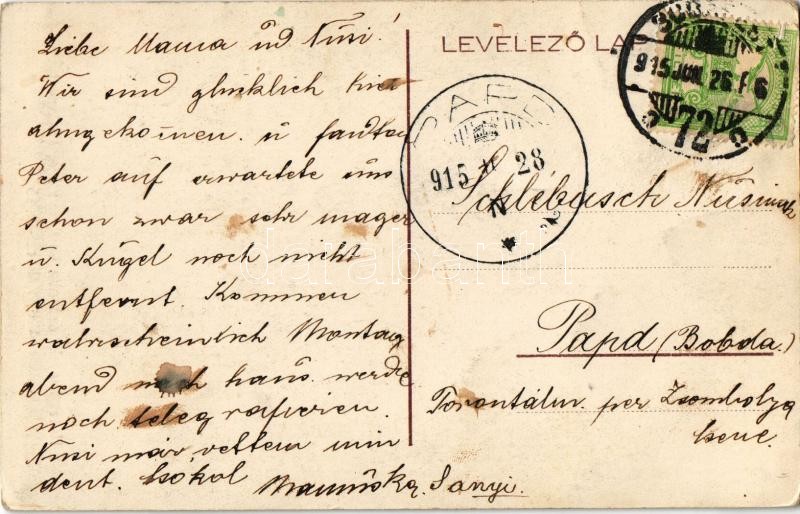 Liebe Mama und Nusi!
Wir sind glücklich hier
angekomen. u fanden
Peter auf erwartete uns
schon zwar sehr mager
u. Kugel noch nicht
entfernt. Kommen
wahrscheinlich Montag
abend nach haus werde
noch telegrafieren.
Nusi már vettem min
dent. Csokol
Mamuska, Sanyi.
LEVELEZŐ LAP
BUDAPEST
915 JUN. 26. F 6
72
PAPD
915
28
Schlébusch Nusinak
Papd (Bobda.)
Torontálm. per Zsombolya
darabanth